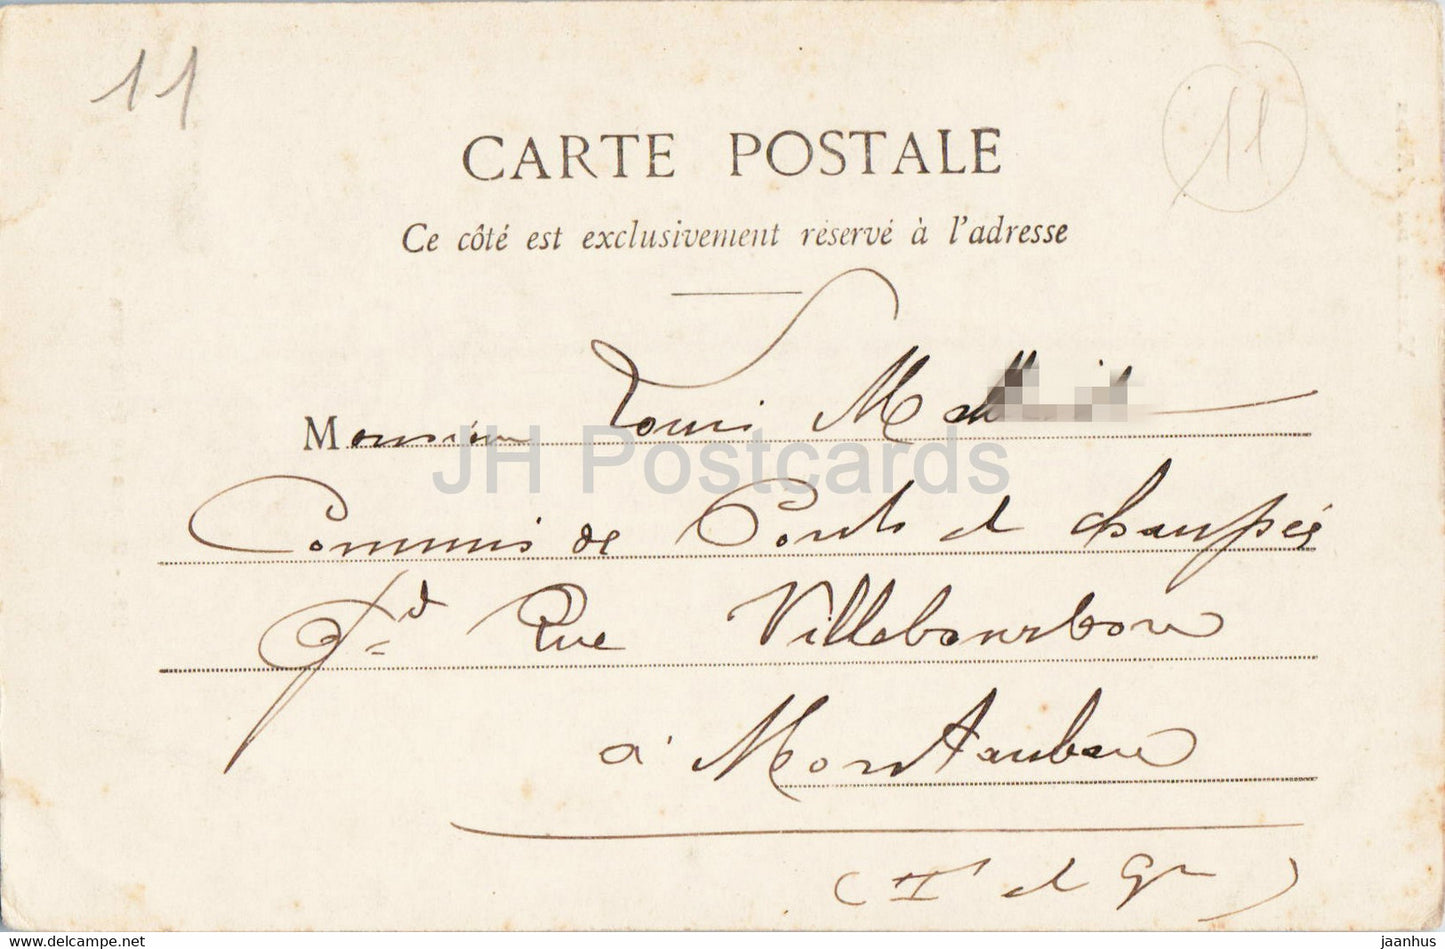 11
11
CARTE POSTALE
Ce côté est exclusivement réservé à l'adresse
Monsieur Louis
JH Postcards
Commis de Ponts et chaussées
Gd Rue Villebourbon
à Montauban
(Tn et Gne)
www.delcampe.net
jaanhus